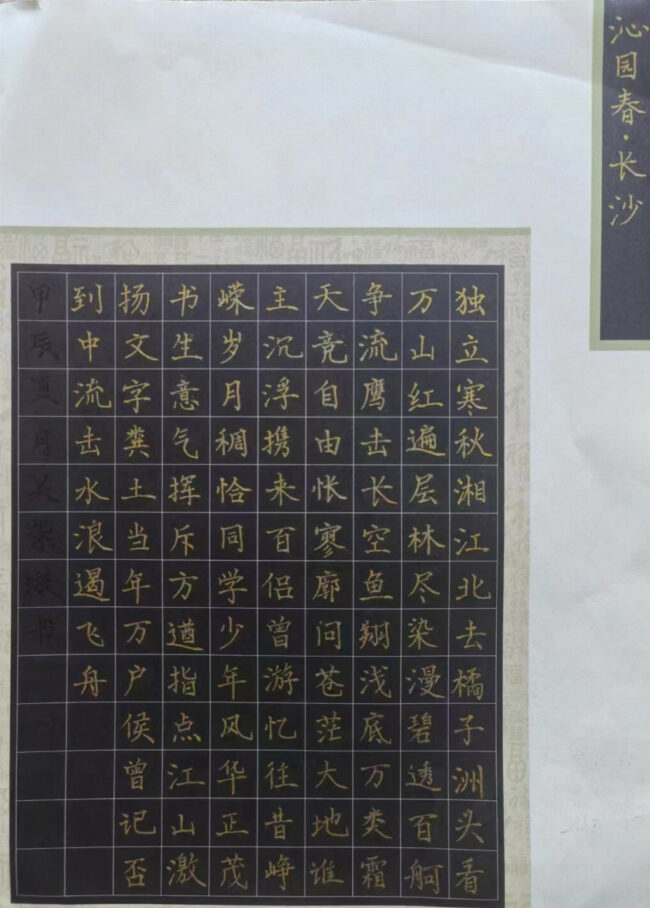 沁园春·长沙
独立寒秋湘江北去橘子洲头看
万山红遍层林尽染漫碧透百舸
争流鹰击长空鱼翔浅底万类霜
天竞自由怅寥廓问苍茫大地谁
主沉浮携来百侣曾游忆往昔峥
嵘岁月稠恰同学少年风华正茂
书生意气挥斥方遒指点江山激
扬文字粪土当年万户侯曾记否
到中流击水浪遏飞舟
甲辰夏月书